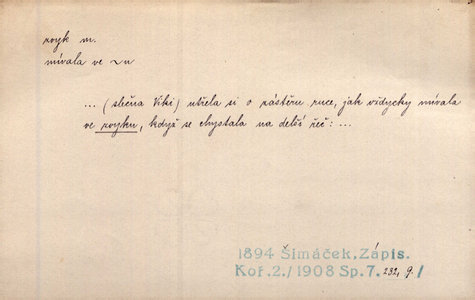 zvyk m.
mívala ve zu
... (slečna Viki) utřela si o zástěru ruce, jak vždycky mívala
ve zvyku, když se chystala na delší řeč: ...
1894 Šimáček, Zápis.
Koř. 2./1908 Sp. 7. 232, 9./